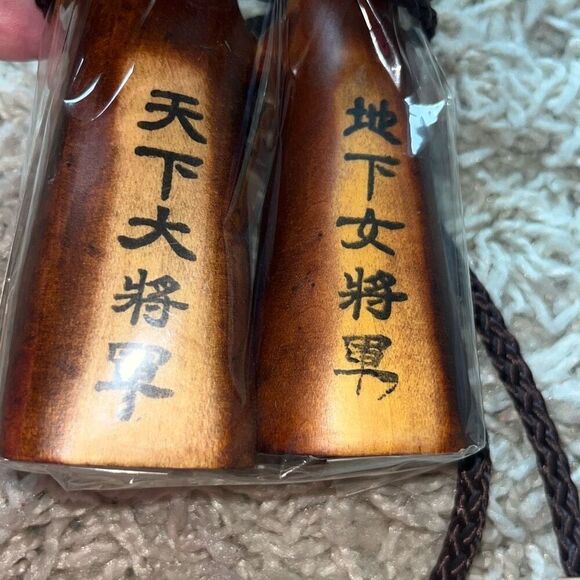 天下大將軍
地下女將軍